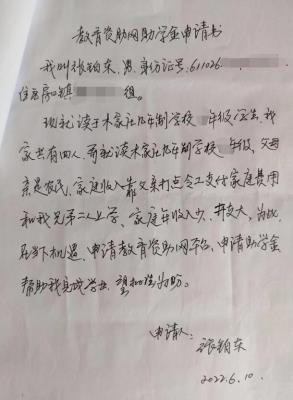 教育资助网助学金申请书
我叫张铂东,男,身份证号:611026
住 镇 组。
现就读于木家庄九年制学校 年级学生,我
家共有四人,弟就读木家庄九年制学校 年级,父母
亲是农民,家庭收入靠父亲打点令工支付家庭费用
和我兄弟二人上学,家庭年收入少,开支大,为此
在当下机遇,申请教育资助网平台,申请助学金
帮助我完成学业,望批准为盼。
申请人:
张铂东
2022.6.10